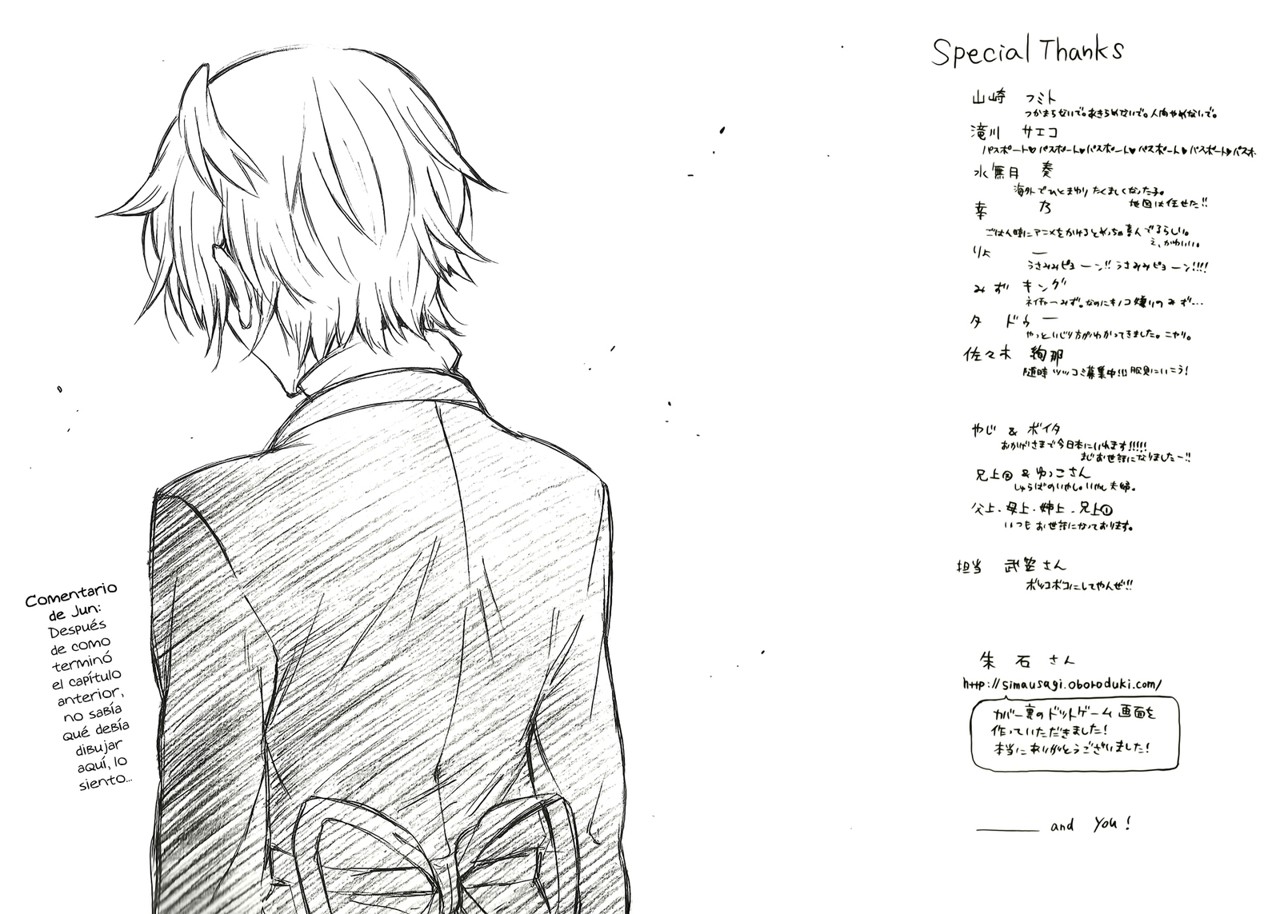 Comentario
de Jun:
Después
de como
terminó
el capítulo
anterior,
no sabía
qué debía
dibujar
aquí, lo
siento...
Special Thanks
山崎 フミト
つかまらないで。あきらめないで。人間やめないで。
滝川 サエコ
パスポート♥パスポート♥パスポート♥パスポート♥パスポート♥パスポ
水無月 奏
海外でひとまわりたくましくなった子。
地図は任せた!!
幸 乃
ごはん時にアニメをかけると
え、かわいい。
りょー
うさみみピョーン!! うさみみピョーン!!!!
みずキング
ネイチャーみず。なのにキノコ嫌いのみず…
タドゥー
やっといじり方がわかってきました。ニヤリ。
佐々木 絢那
随時ツッコミ募集中!!! 服買いにいこう!
やじ & ボイタ
おかげさまで今日本にいれます!!!!!
まじお世話になりましたー!!
兄上② & ゆっこさん
しゅらばのいやし。いやし夫婦。
父上・母上・姉上・兄上①
いつもお世話になっております。
担当 武笠さん
ボッコボコにしてやんぜ!!
朱石さん
http://simausagi.oboroduki.com/
カバー裏のドットゲーム画面を
作っていただきました!
本当にありがとうございました!
and You!